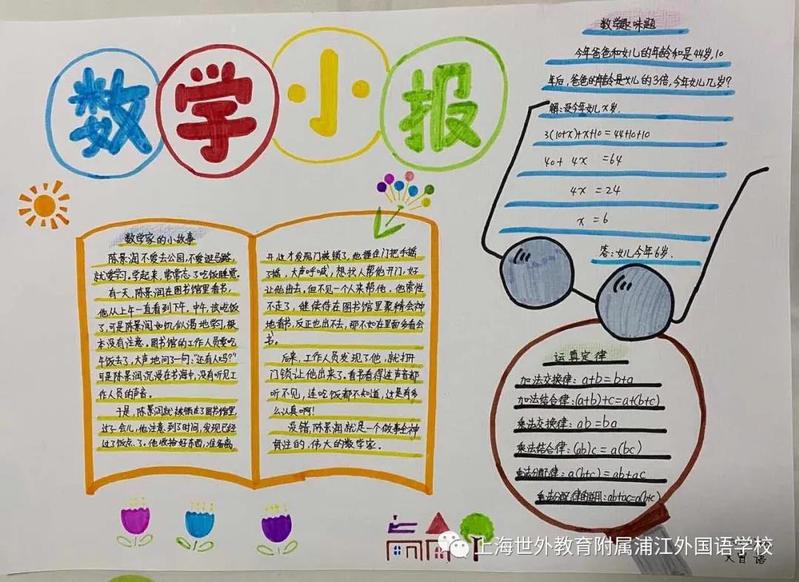 数学小报
数学家的小故事
陈景润不爱去公园,不爱逛马路,
就爱学习。学起来,常常忘了吃饭睡觉。
有一天,陈景润在图书馆里看书。
他从上午一直看到下午。中午,该吃饭
了,可是陈景润如饥似渴地学习,根
本没有注意。图书馆的工作人员要吃
午饭去了,大声地问了一句:“还有人吗?”
可是陈景润沉浸在书海中,没有听见工
作人员的声音。
于是,陈景润就被锁在了图书馆里
过了一会儿,他注意到了时间,发现已经
过了饭点了。他收拾好东西,准备离
开,这才发现门被锁了,他握住门把手摇
了摇,大声呼喊,想找人帮他开门,好
让他出去。但不见一个人来帮他,他索性
不走了,继续待在图书馆里聚精会神
地看书,反正也出不去,那不如在里面多看会
书。
后来,工作人员发现了他,就打开
门锁让他出来了。看书看得连声音都
听不见,连吃饭都不知道,这是有多
么认真啊!
没错,陈景润就是一个做事全神
贯注的,伟大的数学家。
数学趣味题
今年爸爸和女儿的年龄和是44岁,10
年后,爸爸的年龄是女儿的3倍,今年女儿几岁?
解:设今年女儿x岁。
3(10+x)+x+10=44+10+10
40+4x=64
4x=24
x=6
答:女儿今年6岁。
运算定律
加法交换律:a+b=b+a
加法结合律:(a+b)+c=a+(b+c)
乘法交换律:ab=ba
乘法结合律:(ab)c=a(bc)
乘法分配律:a(b+c)=ab+ac
乘法分配律的逆用:ab+ac=a(b+c)
上海世外教育附属浦江外国语学校